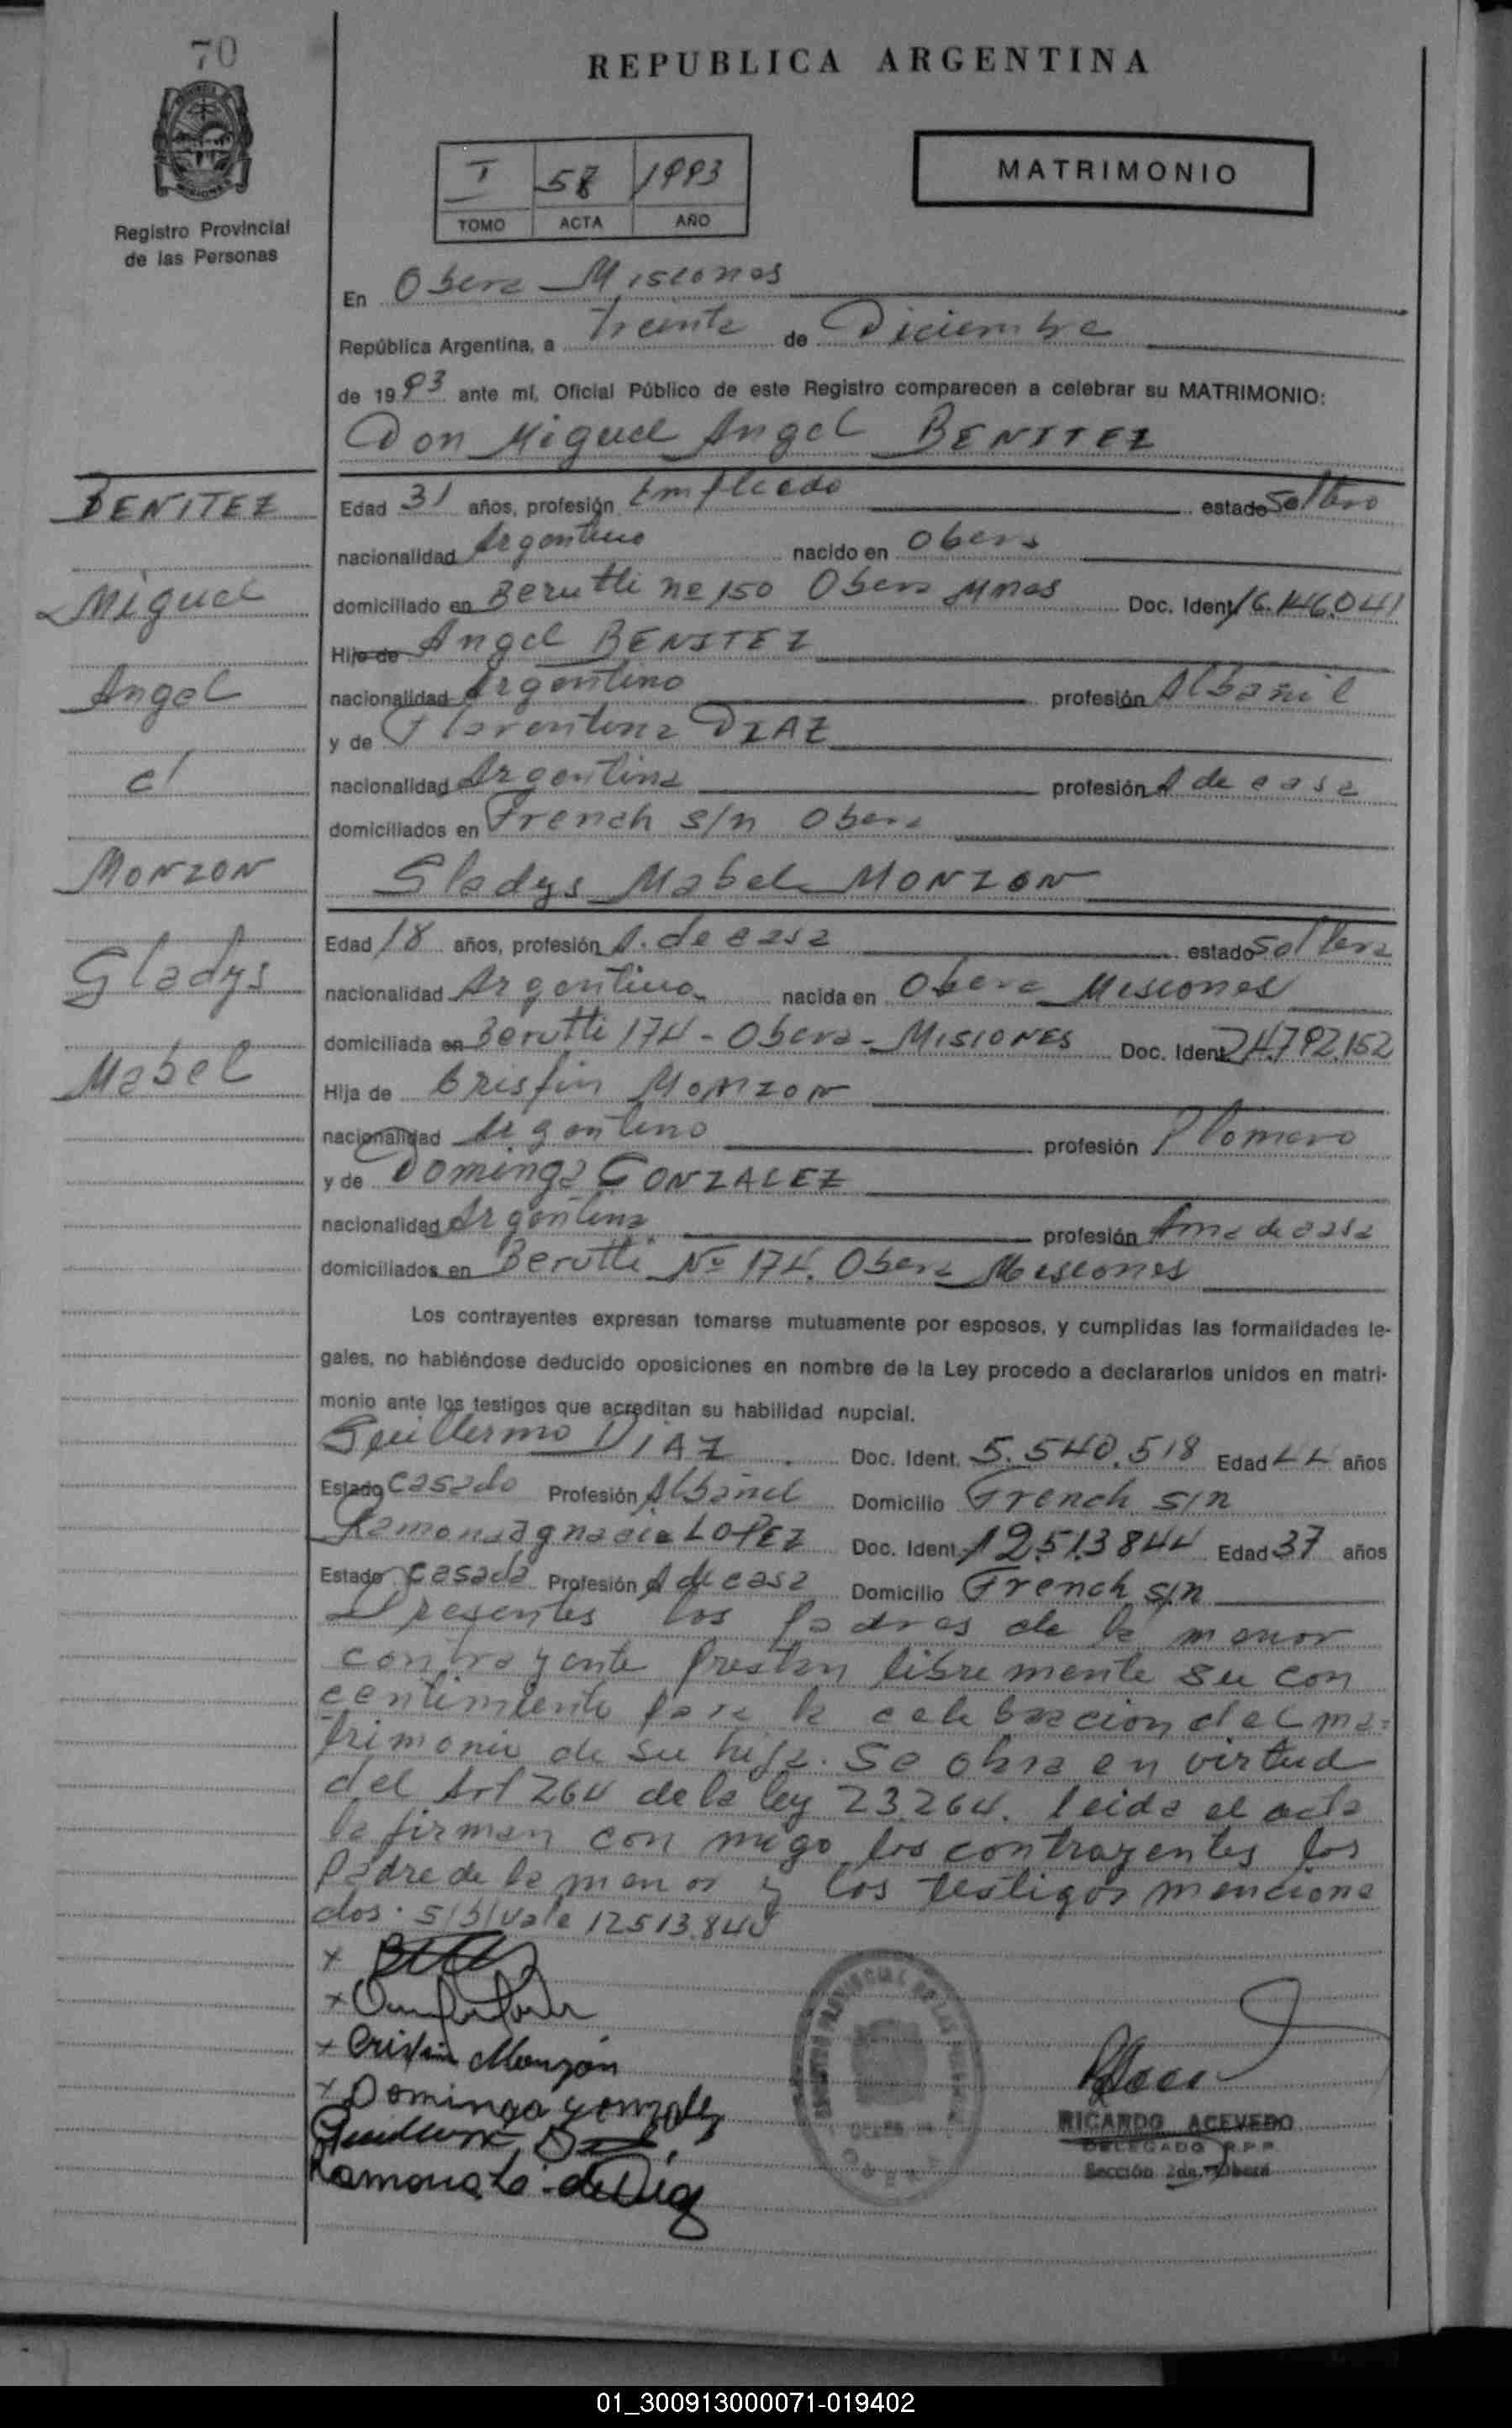 70
REPUBLICA ARGENTINA
MATRIMONIO
I 58 1993
TOMO ACTA AÑO
Registro Provincial
de las Personas
En Obera - Misiones
República Argentina, a treinta de Diciembre
de 1993 ante mí, Oficial Público de este Registro comparecen a celebrar su MATRIMONIO:
Don Miguel Angel BENITEZ
BENITEZ
Edad 31 años, profesión Empleado estado Soltero
nacionalidad Argentino nacido en Obera
Miguel
domiciliado en Berutti nº 150 Obera Mnes Doc. Ident 16.146.041
Hijo de Angel BENITEZ
Angel
nacionalidad Argentino profesión Albañil
y de Florentina DIAZ
c/
nacionalidad Argentina profesión A de casa
domiciliados en French s/n Obera
MONZON
Gladys Mabel MONZON
Edad 18 años, profesión A. de casa estado Soltera
Gladys
nacionalidad Argentina nacida en Obera Misiones
domiciliada en Berutti 174 - Obera - MISIONES Doc. Ident 24.792.152
Mabel
Hija de Crisfin MONZON
nacionalidad Argentino profesión Plomero
y de Dominga GONZALEZ
nacionalidad Argentina profesión Ama de casa
domiciliados en Berutti Nº 174. Obera Misiones
Los contrayentes expresan tomarse mutuamente por esposos, y cumplidas las formalidades le-
gales, no habiéndose deducido oposiciones en nombre de la Ley procedo a declararlos unidos en matri-
monio ante los testigos que acreditan su habilidad nupcial.
Guillermo DIAZ Doc. Ident. 5.540.518 Edad 44 años
Estado Casado Profesión Albañil Domicilio French s/n
Ramona Ignacia LOPEZ Doc. Ident. 12.513844 Edad 37 años
Estado casada Profesión A de casa Domicilio French s/n
Presentes los padres de la menor
contrayente prestan libremente su con
centimiento para la celebracion del ma-
trimonio de su hija. Se obra en virtud
del Art 264 de la ley 23.264. leida el acta
la firman con migo los contrayentes los
Padre de la menor y los testigos menciona
dos. S/b/ vale 12513.844
x
x
x Crisfin Monzón
x Dominga gonzalez
Guillermo Diaz
Ramona Lo. de Diaz
RICARDO ACEVEDO
DELEGADO R.P.P.
Sección 2da. - Oberá
01_300913000071-019402